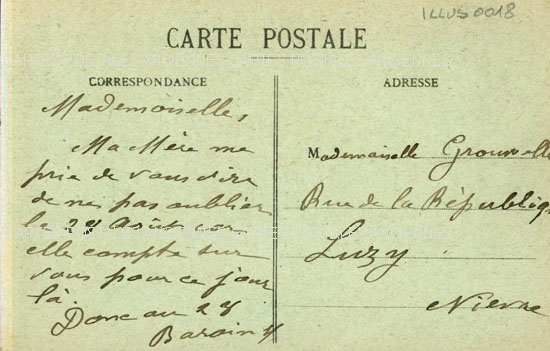 ILLUS0018
CARTE POSTALE
CORRESPONDANCE
Mademoiselle,
Ma Mère me
prie de vous dire
de ne pas oublier
le 24 Août car
elle compte sur
vous pour ce jour
là.
Donc au 24
ADRESSE
Mademoiselle
Rue de la République
Luzy
Nievre